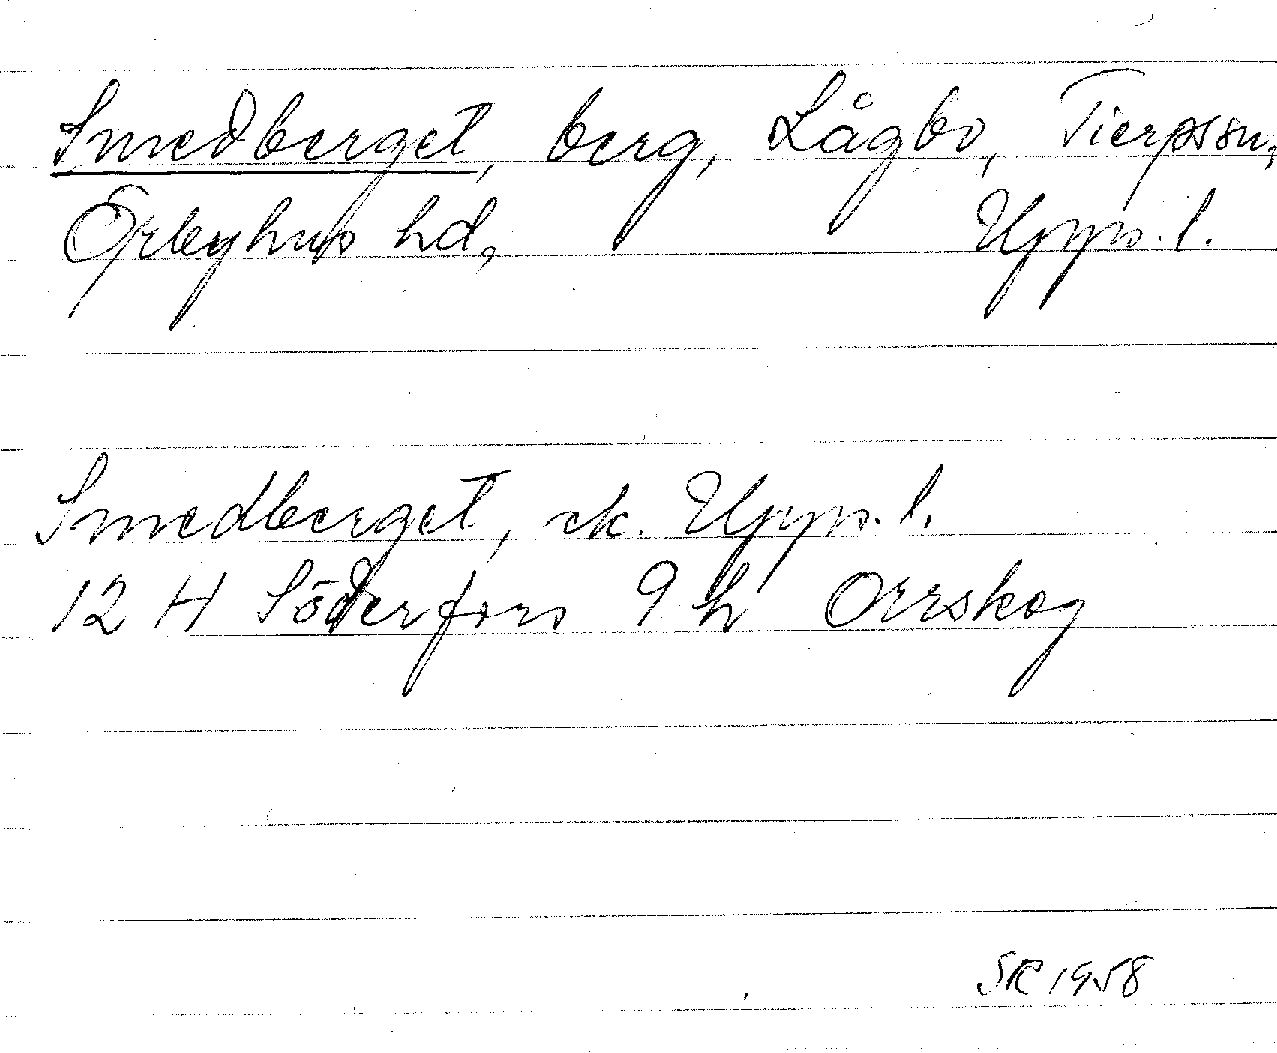 Smedberget, berg, Lågbo, Tierps sn,
Örbyhus hd, Upps. l.
Smedberget, ek. Upps. l.
12 H Söderfors 9 h Orrskog
SR 1958